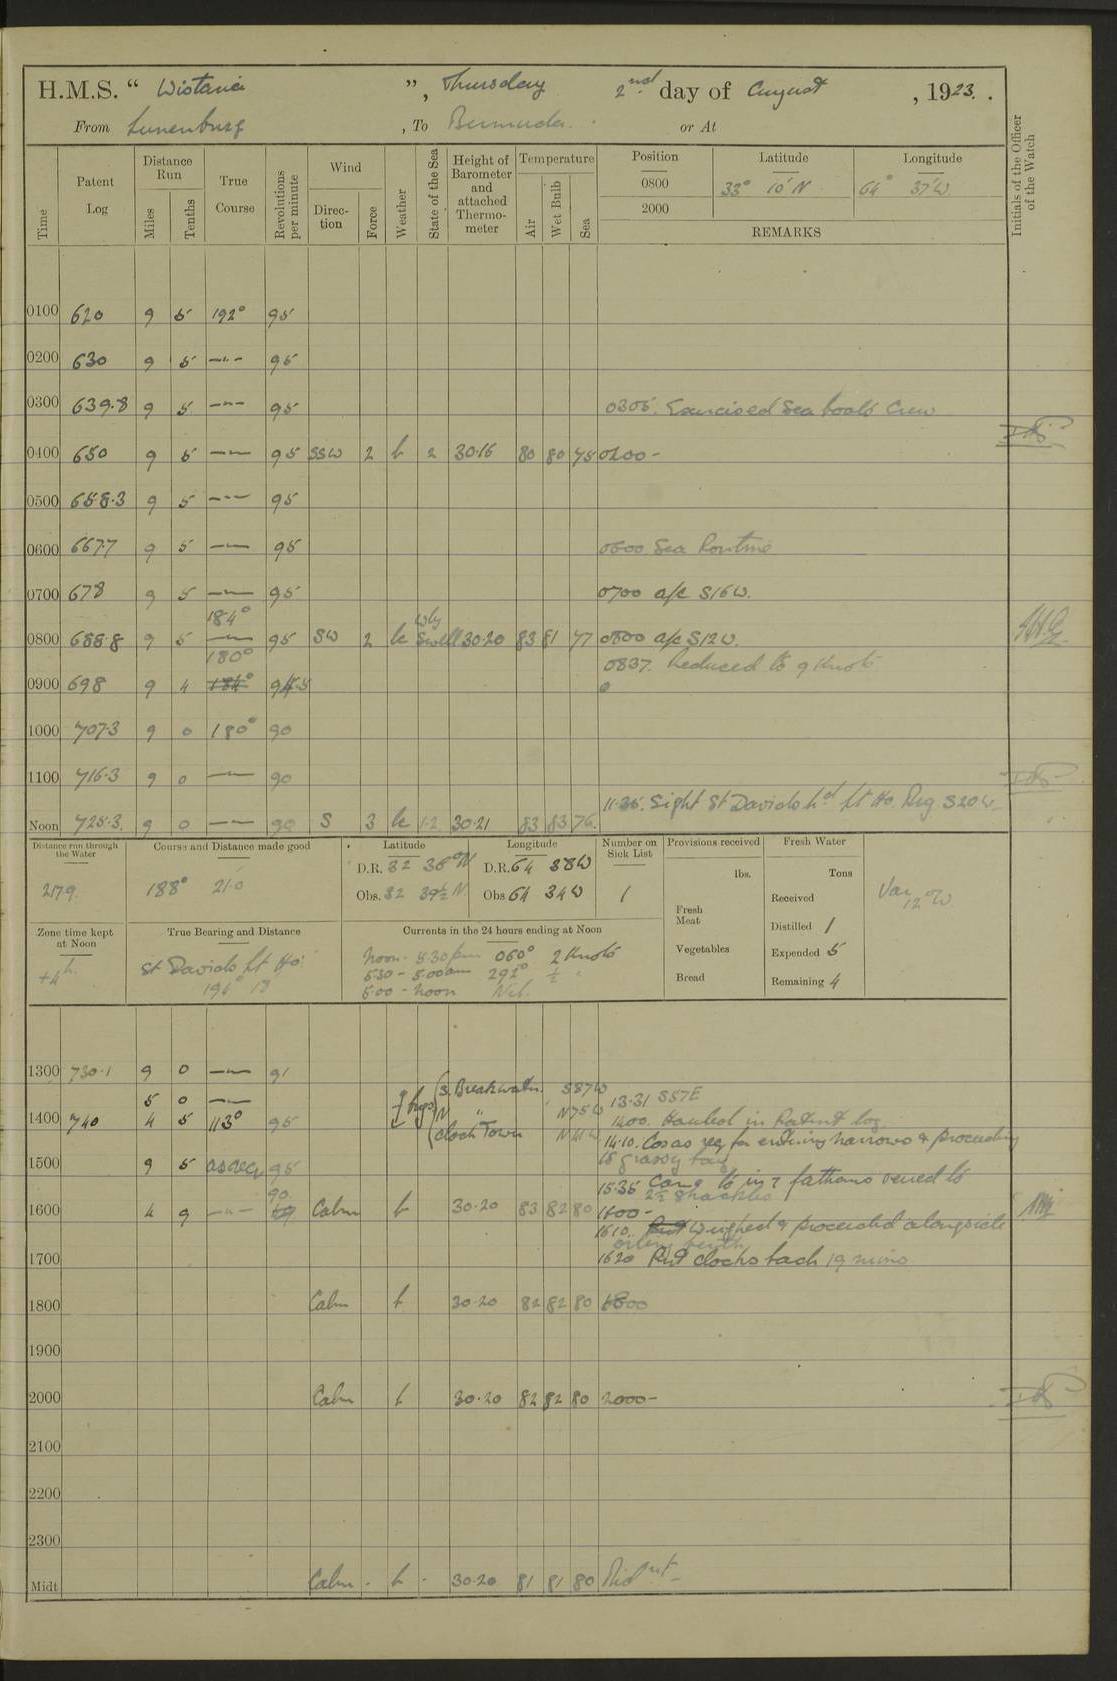 H.M.S. “ Wistaria ”, Thursday 2nd day of August , 1923.
From Lunenburg , To Bermuda. or At
Time
Patent Log
Distance Run
Miles
Tenths
True Course
Revolutions per minute
Wind
Direction
Force
Weather
State of the Sea
Height of Barometer and attached Thermometer
Temperature
Air
Wet Bulb
Sea
Position
0800
2000
Latitude
33° 10' N
Longitude
64° 37' W
REMARKS
Initials of the Officer of the Watch
0100 620 9 5 192° 95
0200 630 9 5 —"— 95
0300 639.8 9 5 —"— 95 0305. Exercised Sea boats Crew
0400 650 9 5 —"— 95 SSW 2 b 2 30.16 80 80 75 0400 -
0500 658.3 9 5 —"— 95
0600 667.7 9 5 —"— 95 0600 Sea Routine
0700 678 9 5 —"— 95 0700 a/c S16W.
184°
0800 688.8 9 5 —"— 95 SW 2 bc Wly Swell 30.20 83 81 77 0800 a/c S12W.
180°
0837. Reduced to 9 Knots
0900 698 9 4 184° 94.5
1000 707.3 9 0 180° 90
1100 716.3 9 0 —"— 90
11.35. Sight St Davids hd Lt Ho. Brg S20W.
Noon 725.3 9 0 —"— 90 S 3 bc 1.2 30.21 83 83 76.
Distance run through the Water
2179
Course and Distance made good
188° 210
Latitude
D.R. 32 36 N
Obs. 32 39½ N
Longitude
D.R. 64 38 W
Obs 64 34 W
Number on Sick List
1
Provisions received
lbs.
Fresh Meat
Vegetables
Bread
Fresh Water
Tons
Received
Distilled 1
Expended 5
Remaining 4
Var 12° W
Zone time kept at Noon
+4h.
True Bearing and Distance
St Davids Lt Ho.
196° 19
Currents in the 24 hours ending at Noon
Noon - 5.30pm 060° 2 Knots
5.30 - 5.00am 292° ½ "
5.00 - Noon Nil.
1300 730.1 9 0 —"— 91
5 0 —"—
S. Breakwater. S87W
N " N75W
Clock Tower N41W
13.31 S57E
1400 740 4 5 113° 95 1400. Hauled in Patent log
14.10. Co as req for entering narrows & proceeding
to grassy bay
1500 9 5 as req 95
15.35 Came to in 7 fathoms veered to
2½ Shackles
90
1600 4 9 —"— Calm b 30.20 83 82 80 1600 -
1610. Weighed & proceeded alongside
oiling berth
1700 1620 Put clocks back 19 mins
1800 Calm b 30.20 82 82 80 1800
1900
2000 Calm b 30.20 82 82 80 2000 -
2100
2200
2300
Midt Calm - b - 30.20 81 81 80 Midnt -